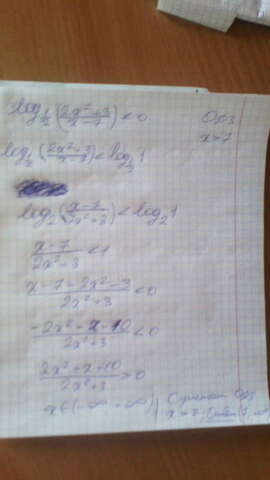 log½(2x²+3/x-7) < 0
ОДЗ
x>7
log½(2x²+3/x-7) < log½1
log₂(x-7/2x²+3) < log₂1
x-7/2x²-3 < 1
x-7-2x²-3/2x²+3 < 0
-2x²-x-10/2x²+3 < 0
2x²+x+10/2x²+3 > 0
x∈(-∞ -∞)
С учетом ОДЗ
x>7,